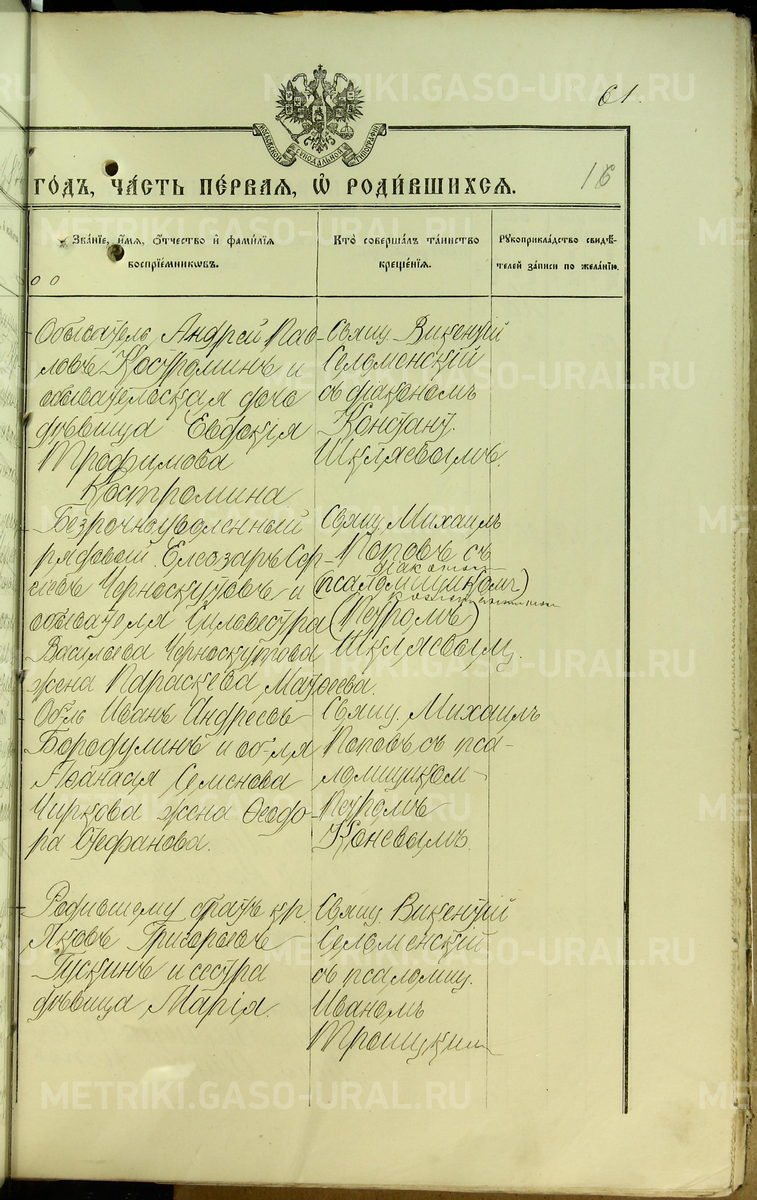 61.
16
МОСКОВСКОЙ СѴНОДАЛЬНОЙ ТИПОГРАФІИ
ГО́ДЪ, ЧА́СТЬ ПЕ́РВАЯ, Ѽ РОДИ́ВШИХСЯ.
Зва́ніе, и҆́мя, ѻ҆́тчество и҆ фами́лія воспріе́мникѡвъ.
Кто̀ соверша́лъ та́инство креще́нія.
Рꙋкоприкла́дство свидѣ́телей за́писи по жела́нію.
Обыватель Андрей Пав-
ловъ Костроминъ и
обывательская дочь
дѣвица Евдокія
Трофимова
Костромина
Свящ. Викентій
Селоменскій
съ діакономъ
Констант.
Шкляевымъ.
Безсрочноуволенный
рядовой Елеозаръ Сер-
геевъ Черноскутовъ и
обывателя Сильвестра
Васильева Черноскутова
жена Параскева Матѳеева.
Свящ. Михаилъ
Поповъ съ
діакономъ
(псаломщикомъ)
(Петромъ)
Шкляевым
Об-ль Иванъ Андреевъ
Бородулинъ и об-ля
Аѳанасія Семенова
Чиркова жена Ѳеодо-
ра Стефанова.
Свящ. Михаилъ
Поповъ съ пса-
ломщиком
Петромъ
Коневымъ.
Родившему братъ кр.
Яковъ Григорьевъ
Гускинъ и сестра
дѣвица Марія.
Свящ. Викентій
Селоменскій
съ псаломщ.
Иваномъ
Троицким
METRIKI.GASO-URAL.RU